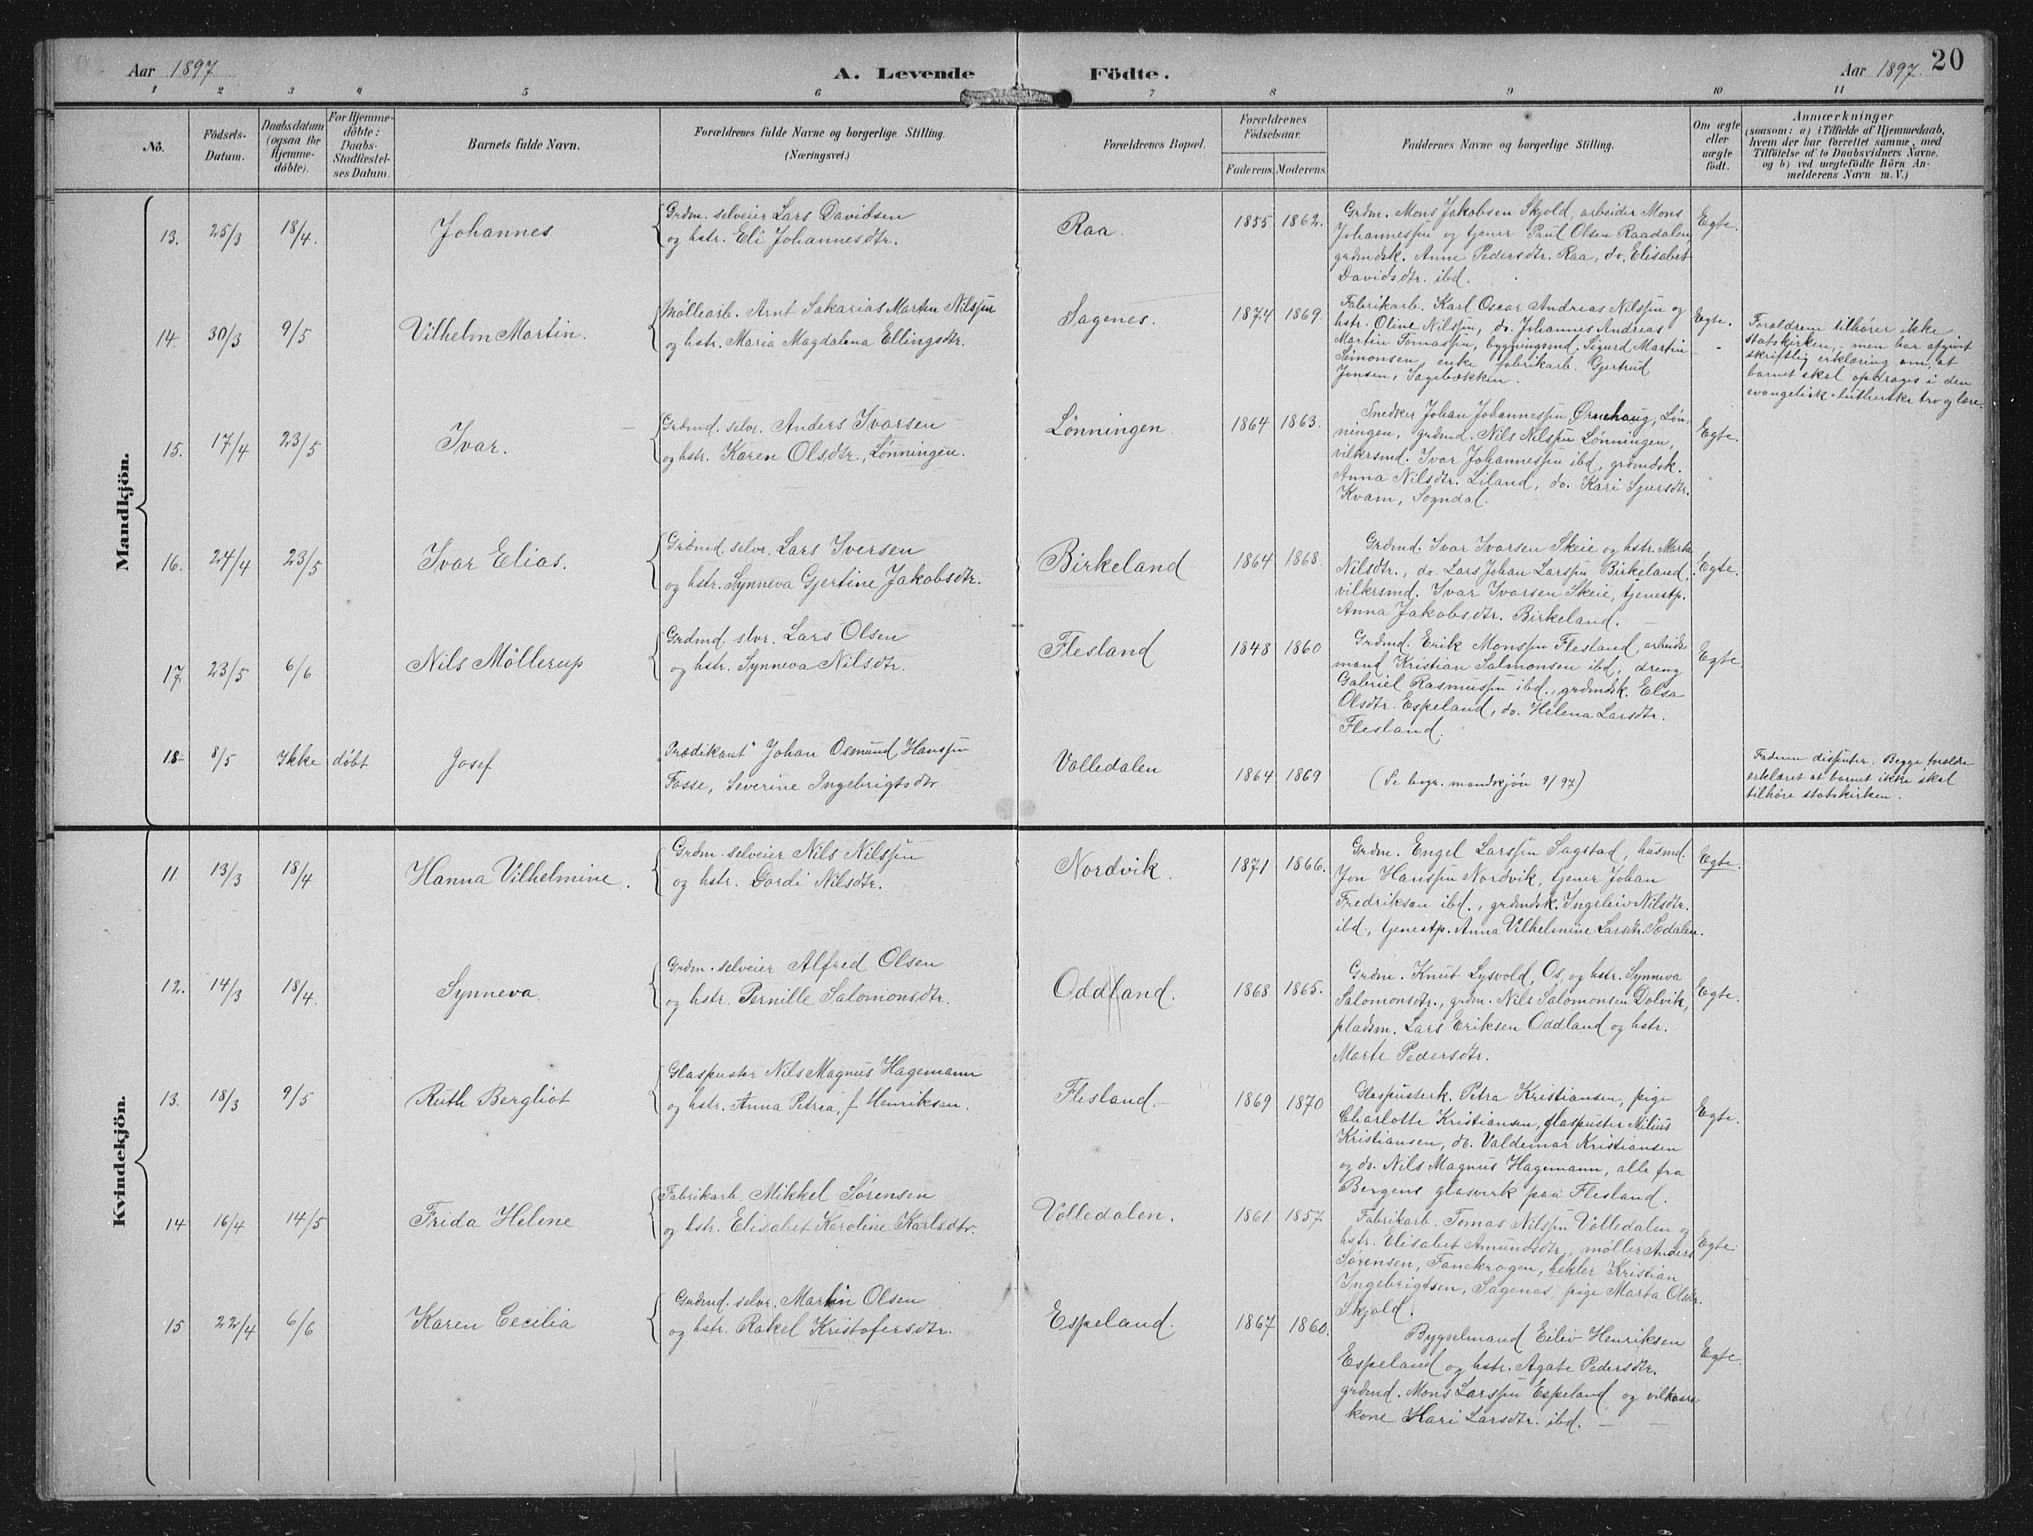 Aar 1897
A. Levende Födte.
Aar 1897. 20
1 2 3 4 5 6 7 8 9 10 11
No.
Födsels-
Datum.
Daabsdatum
(ogsaa for
Hjemme-
döbte).
For Hjemme-
döbte:
Daabs-
Stadfæstel-
ses Datum.
Barnets fulde Navn.
Forældrenes fulde Navne og borgerlige Stilling.
(Næringsvei.)
Forældrenes Bopæl.
Forældrenes
Födselsaar.
Faderens. Moderens.
Faddernes Navne og borgerlige Stilling.
Om ægte
eller
uægte
födt.
Anmærkninger
(saasom: a) i Tilfælde af Hjemmedaab,
hvem der har forrettet samme, med
Tilföielse af to Daabsvidners Navne.
og b) ved uægtefödte Börn An-
melderens Navn m. V.)
Mandkjön.
13. 25/3 18/4. Johannes
Grdm. selveier Lars Davidsen
og hstr. Eli Johannesdtr.
Raa. 1855 1862.
Grdm. Mons Jakobsen Skjold, arbeider Mons
Johannessen og tjener Paul Olsen Raadalen,
grdmdsk. Anne Pedersdtr. Raa, do. Elisabet
Davidsdtr. ibd.
Egte.
14. 30/3 9/5 Vilhelm Martin.
Møllearb. Arnt Sakarias Martin Nilssen
og hstr. Maria Magdalena Ellingsdtr.
Sagenes. 1874 1869
Fabrikarb. Karl Oscar Andreas Nilssen og
hstr. Olive Nilssen, do. Johannes Andreas
Martin Tomassen, bygningsmd. Sigurd Martin
Simonsen, enke fabrikarb. Gjertrud
Jensen, Sagebækken.
Egte.
Forældrene tilhører ikke
statskirken, - men har afgivit
skriftlig erklæring om, at
barnet skal opdrages i den
evangelisk-lutherske tro og lære.
15. 17/4 23/5 Ivar.
Grdmd. selvr. Anders Ivarsen
og hstr. Karen Olsdtr., Lønningen.
Lønningen. 1864 1863.
Snedker Johan Johannessen Ørnehaug, Løn-
ningen, grdmd. Nils Nilssen Lønningen,
vilkrsmd. Ivar Johannessen ibd, grdmdsk.
Anna Nilsdtr. Liland, do. Kari Sjursdtr.
Kvam, Sogndal.
Egte.
16. 24/4 23/5 Ivar Elias.
Grdmd. selvr. Lars Iversen
og hstr. Synneva Gjertine Jakobsdtr.
Birkeland 1864 1868.
Grdmd. Ivar Ivarsen Skeie og hstr. Marta
Nilsdtr., do. Lars Johan Larssen Birkeland,
vilkrsmd. Ivar Ivarsen Skeie, tjenestp.
Anna Jakobsdtr. Birkeland.
Egte.
17. 23/5 6/6 Nils Möllerup
Grdmd. slvr. Lars Olsen
og hstr. Synneva Nilsdtr.
Flesland 1848 1860
Grdmd. Erik Monssen Flesland, arbeids-
mand Kristian Salmonsen ibd, dreng
Gabriel Rasmussen ibd., grdmdsk. Elsa
Olsdtr. Espeland, do. Helena Larsdtr.
Flesland.
Egte.
18. 8/5 Ikke døbt Josef
"Prædikant" Johan Osmund Hanssen
Fosse, Severine Ingebrigtsdtr.
Volledalen 1864 1869
(Se begr. mandkjøn 9/97)
Faderen dissenter. Begge forældre
erklæret at barnet ikke skal
tilhøre statskirken.
Kvindekjön.
11. 13/3 18/4 Hanna Vilhelmine.
Grdm. selveier Nils Nilssen
og hstr. Gordi Nilsdtr.
Nordvik. 1871 1866.
Grdm. Engel Larssen Sagstad, husmd.
Jon Hanssen Nordvik, tjener Johan
Fredriksen ibd., grdmdsk. Ingeleiv Nilsdtr.
ibd., tjenestp. Anna Vilhelmine Larsdtr. Sødalen.
Egte.
12. 14/3 18/4. Synneva.
Grdm. selveier Alfred Olsen
og hstr. Pernille Salomonsdtr.
Oddland. 1868 1865.
Grdm. Knut Lysvold, Os, og hstr. Synneva
Salomonsdtr., grdm. Nils Salomonsen Dolvik,
pladsm. Lars Eriksen Oddland og hstr.
Marte Pedersdtr.
Egte.
13. 18/3 9/5 Ruth Bergliot
Glaspuster Nils Magnus Hagemann
og hstr. Anna Petrea, f. Henriksen.
Flesland. 1869 1870
Glaspusterk. Petra Kristiansen, pige
Charlotte Kristiansen, glaspuster Milius
Kristiansen, do. Valdemar Kristiansen
og do. Nils Magnus Hagemann, alle fra
Bergens glasverk paa Flesland.
Egte.
14 16/4 14/5 Frida Helene
Fabrikarb. Mikkel Sørensen
og hstr. Elisabet Karoline Karlsdtr.
Volledalen. 1861 1857.
Fabrikarb. Tomas Nilssen Volledalen og
hstr. Elisabet Amundsdtr., møller Anders
Sørensen, Fanekrogen, hekler Kristian
Ingebrigtsen, Sagenes, pige Marta Olsdtr.
Skjold.
Egte.
15 22/4 6/6 Karen Cecilia
Grdmd. selvr. Martin Olsen
og hstr. Rakel Kristofersdtr.
Espeland. 1867 1860.
Bygselmand Eiliv Henriksen
Espeland og hstr. Agate Pedersdtr.
grdmd. Mons Larssen Espeland og vilkaars-
kone Kari Larsdtr. ibd.
Egte.